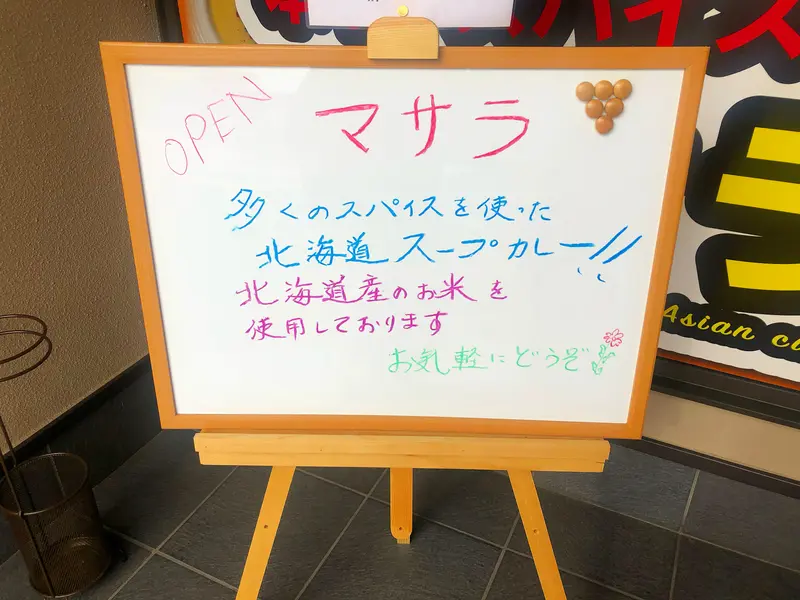 OPEN
マサラ
多くのスパイスを使った
北海道スープカレー!!
北海道産のお米を
使用しております
お気軽にどうぞ
スパイス
Asian